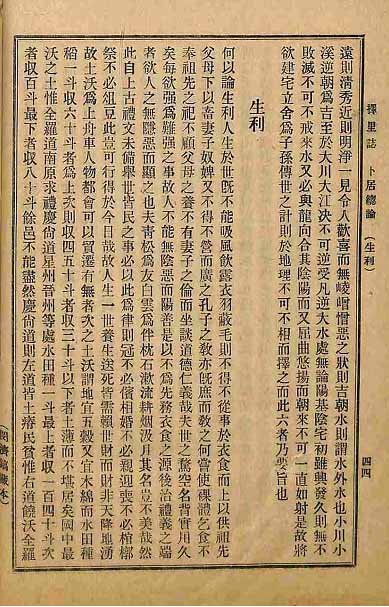 擇里誌 卜居總論 (生利) 四四
遠則清秀近則明淨一見令人歡喜而無崚嶒憎惡之狀則吉朝水則謂水外水也小川小
溪逆朝爲吉至於大川大江決不可逆受凡逆大水處無論陽基陰宅初雖興發久則無不
敗滅不可不戒來水又必與龍向合其陰陽而又屈曲悠揚而朝來不可一直如射是故將
欲建宅立舍爲子孫傳世之計則於地理不可不相而擇之而此六者乃要旨也
生利
何以論生利人生於世旣不能吸風飮露衣羽蔽毛則不得不從事於衣食而上以供祖先
父母下以畜妻子奴婢又不得不營而廣之孔子之敎亦旣庶而敎之何嘗使裸體乞食不
奉祖先之祀不顧父母之養不有妻子之倫而坐談道德仁義哉夫世之騖空名背實用久
矣每欲强爲難强之事故人不能無陰惡而陽善是以不爲先務衣食之源後治禮義之端
者欲人之無隱惡而顯之也夫靑松爲友白雲爲伴枕石漱流耕烟汲月其名豈不美哉然
此自上古禮文未備擧世皆民之事必以此爲律則冠不必儐相婚不必親迎喪不必棺槨
祭不必俎豆此豈可行於今日哉故人生一世養生送死皆需世財而財非天降地湧
故土沃爲上舟車人物都會可以貿遷有無者次之土沃謂地宜五穀又宜木綿而水田種
稻一斗收六十斗者爲上次則收四五十斗者收三十斗以下者土薄而不堪居矣國中最
沃之土惟全羅道南原求禮慶尙道星州晉州等處水田種一斗最上者收一百四十斗次
者收百斗最下者收八十斗餘邑不能盡然慶尙道則左道皆土瘠民貧惟右道饒沃全羅